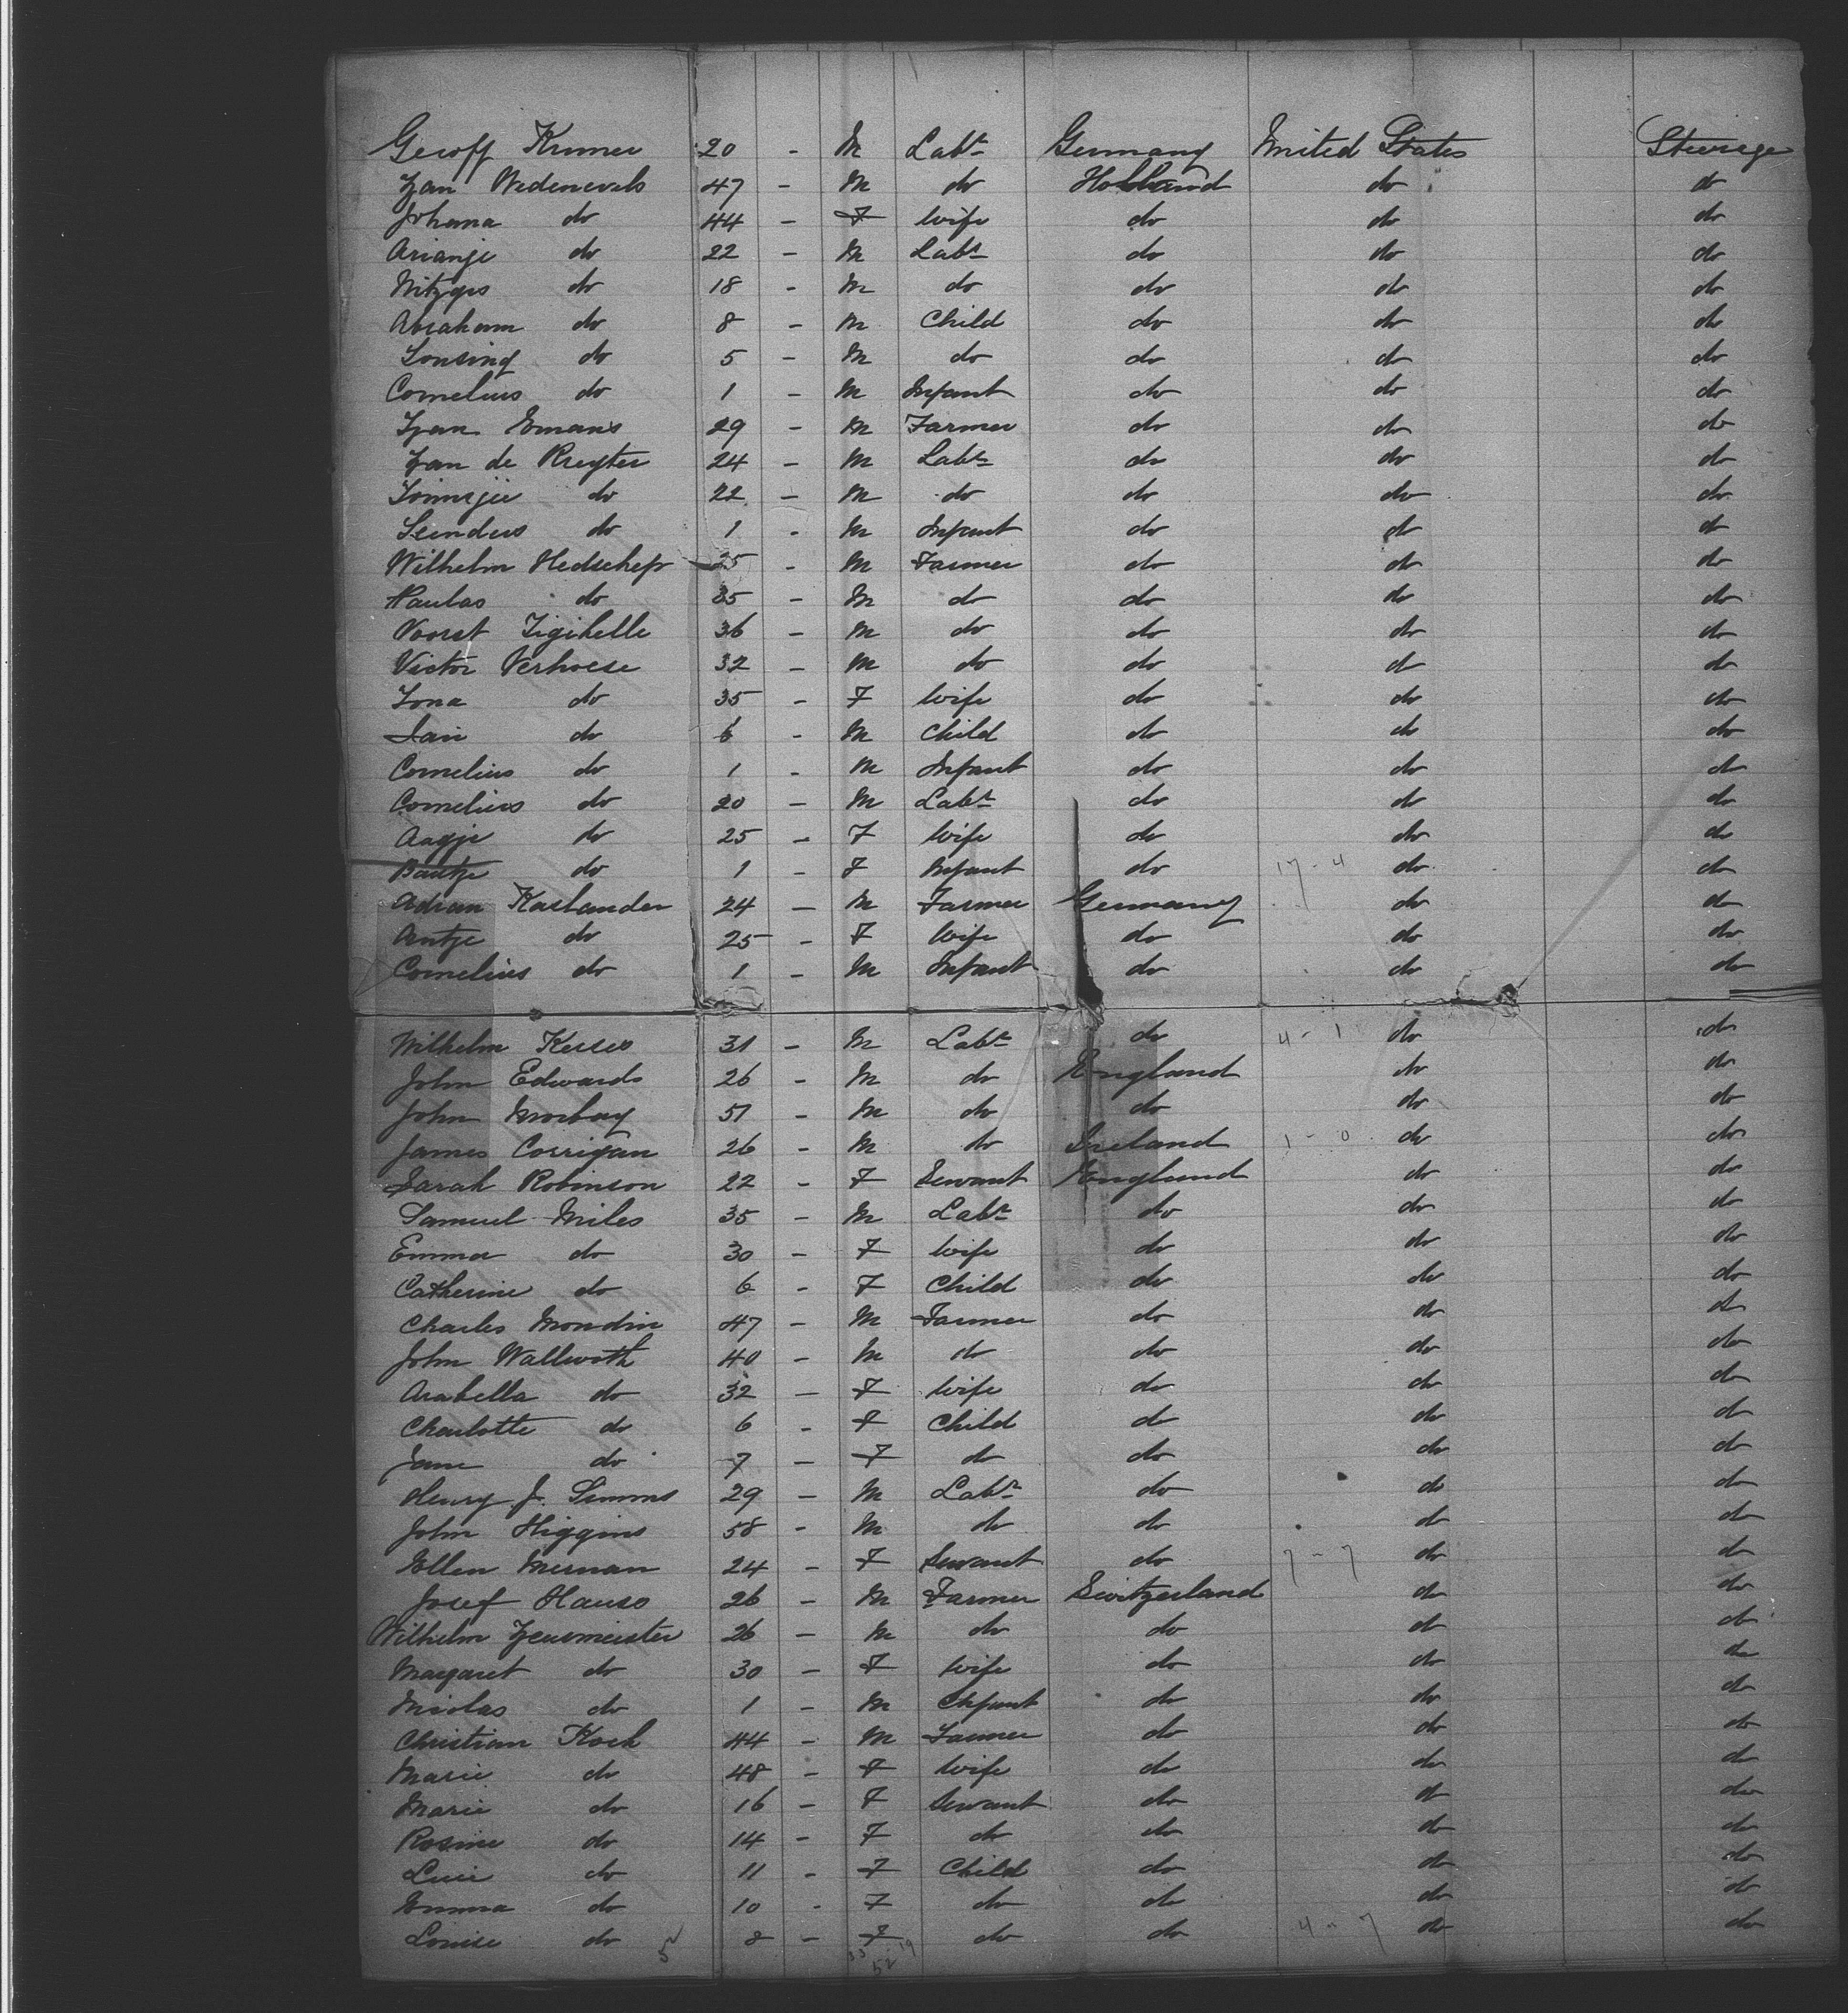 Geroff Krumer 20 - M Labr Germany United States Steerage
Jan Wedenevels 47 - M do Holland do do
Johana do 44 - F Wife do do do
Arianje do 22 - M Labr do do do
do 18 - M do do do do
Abraham do 8 - M Child do do do
Lonsing do 5 - M do do do do
Cornelius do 1 - M Infant do do do
Jan Emans 29 - M Farmer do do do
Jan de Kruyter 24 - M Labr do do do
do 22 - M do do do do
Leendus do 1 - M Infant do do do
Wilhelm Hedschefr 25 - M Farmer do do do
Paulas do 35 - M do do do do
Voorst Zigihelle 36 - M do do do do
Victor Verhoese 32 - M do do do do
Lona do 35 - F Wife do do do
Jan do 6 - M Child do do do
Cornelius do 1 - M Infant do do do
Cornelius do 20 - M Labr do do do
Aagje do 25 - F Wife do do do
Bautje do 1 - F Infant do 17-4 do do
Adrian Kaslander 24 - M Farmer Germany do do
Antje do 25 - F Wife do do do
Cornelius do 1 - M Infant do do do
Wilhelm Keises 31 - M Labr do 4-1 do do
John Edwards 26 - M do England do do
John Morbay 51 - M do do do do
James Corrigan 26 - M do Ireland 1-0 do do
Sarah Robinson 22 - F Servant England do do
Samuel Miles 35 - M Labr do do do
Emma do 30 - F Wife do do do
Catherine do 6 - F Child do do do
Charles Mondin 47 - M Farmer do do do
John Wallworth 40 - M do do do do
Arabella do 32 - F Wife do do do
Charlotte do 6 - F Child do do do
Jane do 7 - F do do do do
Henry J. Simms 29 - M Labr do do do
John Higgins 58 - M do do do do
Ellen Mernan 24 - F Servant do 7-7 do do
Josef Hauso 26 - M Farmer Switzerland do do
Wilhelm Zeusmeister 26 - M do do do do
Margaret do 30 - F Wife do do do
Nicolas do 1 - M Infant do do do
Christian Koch 44 - M Farmer do do do
Marie do 48 - F Wife do do do
Marie do 16 - F Servant do do do
Rosine do 14 - F do do do do
Luie do 11 - F Child do do do
Emma do 10 - F do do do do
Louise do 8 - F do do 4-7 do do
33 19
52